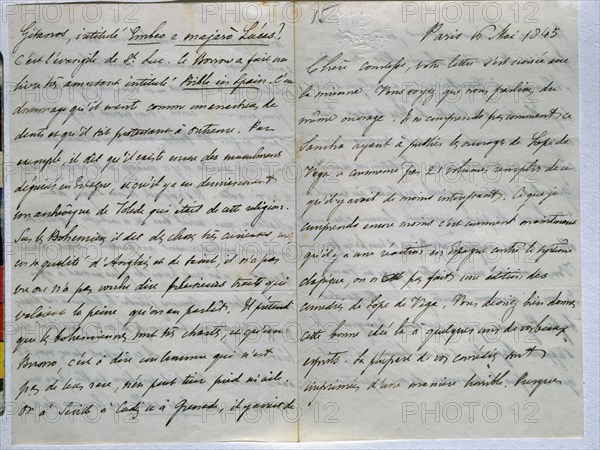 15
Paris 16 Mai 1845
Chère comtesse, votre lettre s'est croisée avec
la mienne. Vous voyez que nous parlions du
même ouvrage. Je ne comprends pas comment ce
Sancha ayant à publier les ouvrages de Lope de
Vega a commencé par 21 volumes complets de ce
qu'il y avait de moins intéressant. Ce que je
comprends encore moins c'est comment maintenant
qu'il y a une réaction en Espagne contre le système
classique, on n'ait pas fait une édition des
comédies de Lope de Vega. Vous devriez bien donner
cette bonne idée là à quelques uns de vos beaux
esprits. La plupart de vos comédies sont
imprimées d'une manière horrible. Puisque
Gitanos, intitulé Embeo e majaró Lucas!
C'est l'évangile de St. Luc. Ce Borrow a fait un
livre très amusant intitulé Bible in Spain. C'est
dommage qu'il mente comme un arracheur de
dents et qu'il soit protestant à outrance. Par
exemple, il dit qu'il existe encore des musulmans
déguisés en Espagne, et qu'il y a eu dernièrement
un archevêque de Tolède qui était de cette religion.
Sur les Bohémiens, il dit des choses très curieuses, mais
en sa qualité d'Anglais et de saint, il n'a pas
vu ou n'a pas voulu dire plusieurs traits qui
valaient la peine qu'on en parlât. Il prétend
que les bohémiennes sont très chastes, et qu'un
Busno, c'est à dire un homme qui n'est
pas de leur race, n'en peut tirer pied ni aile.
Or à Séville à Cadix et à Grenade, il y avait de
PHOTO 12